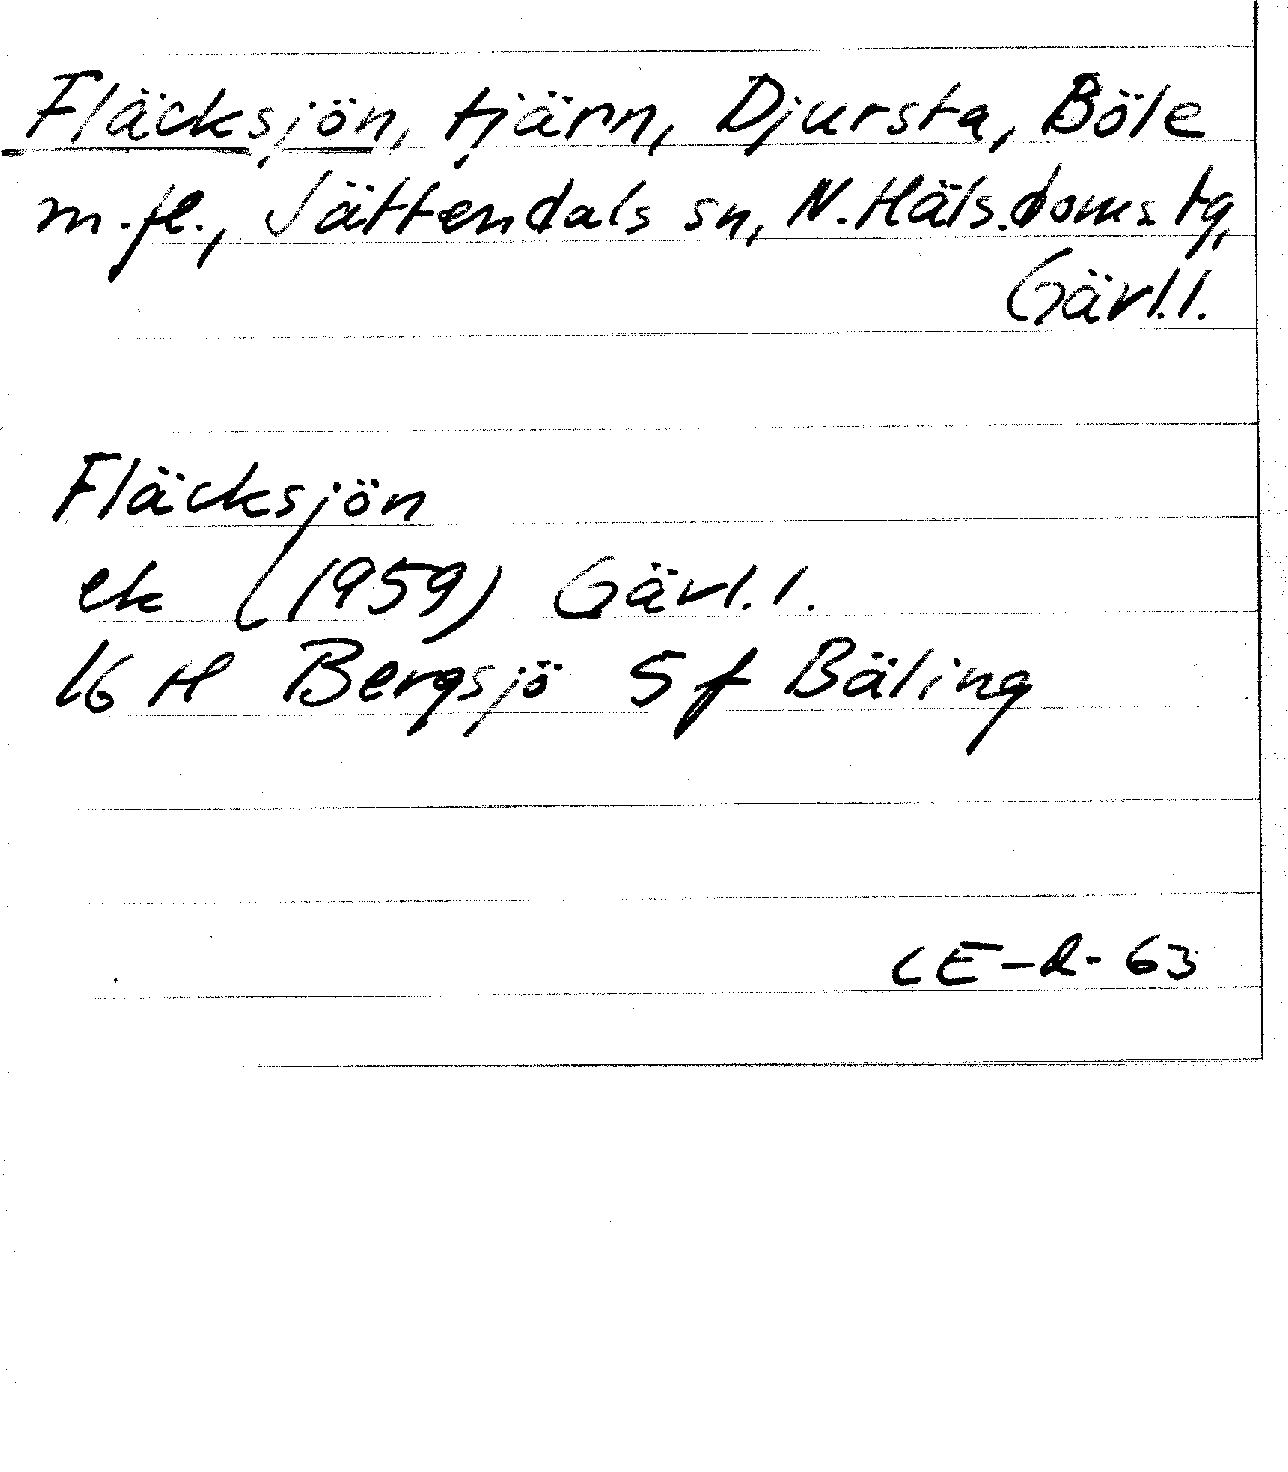 Fläcksjön, tjärn, Djursta, Böle
m.fl., Jättendals sn, N.Häls.doms tg,
Gävl.l.
Fläcksjön
ek (1959) Gävl.l.
16 H Bergsjö 5 f Bäling
CE-R-63